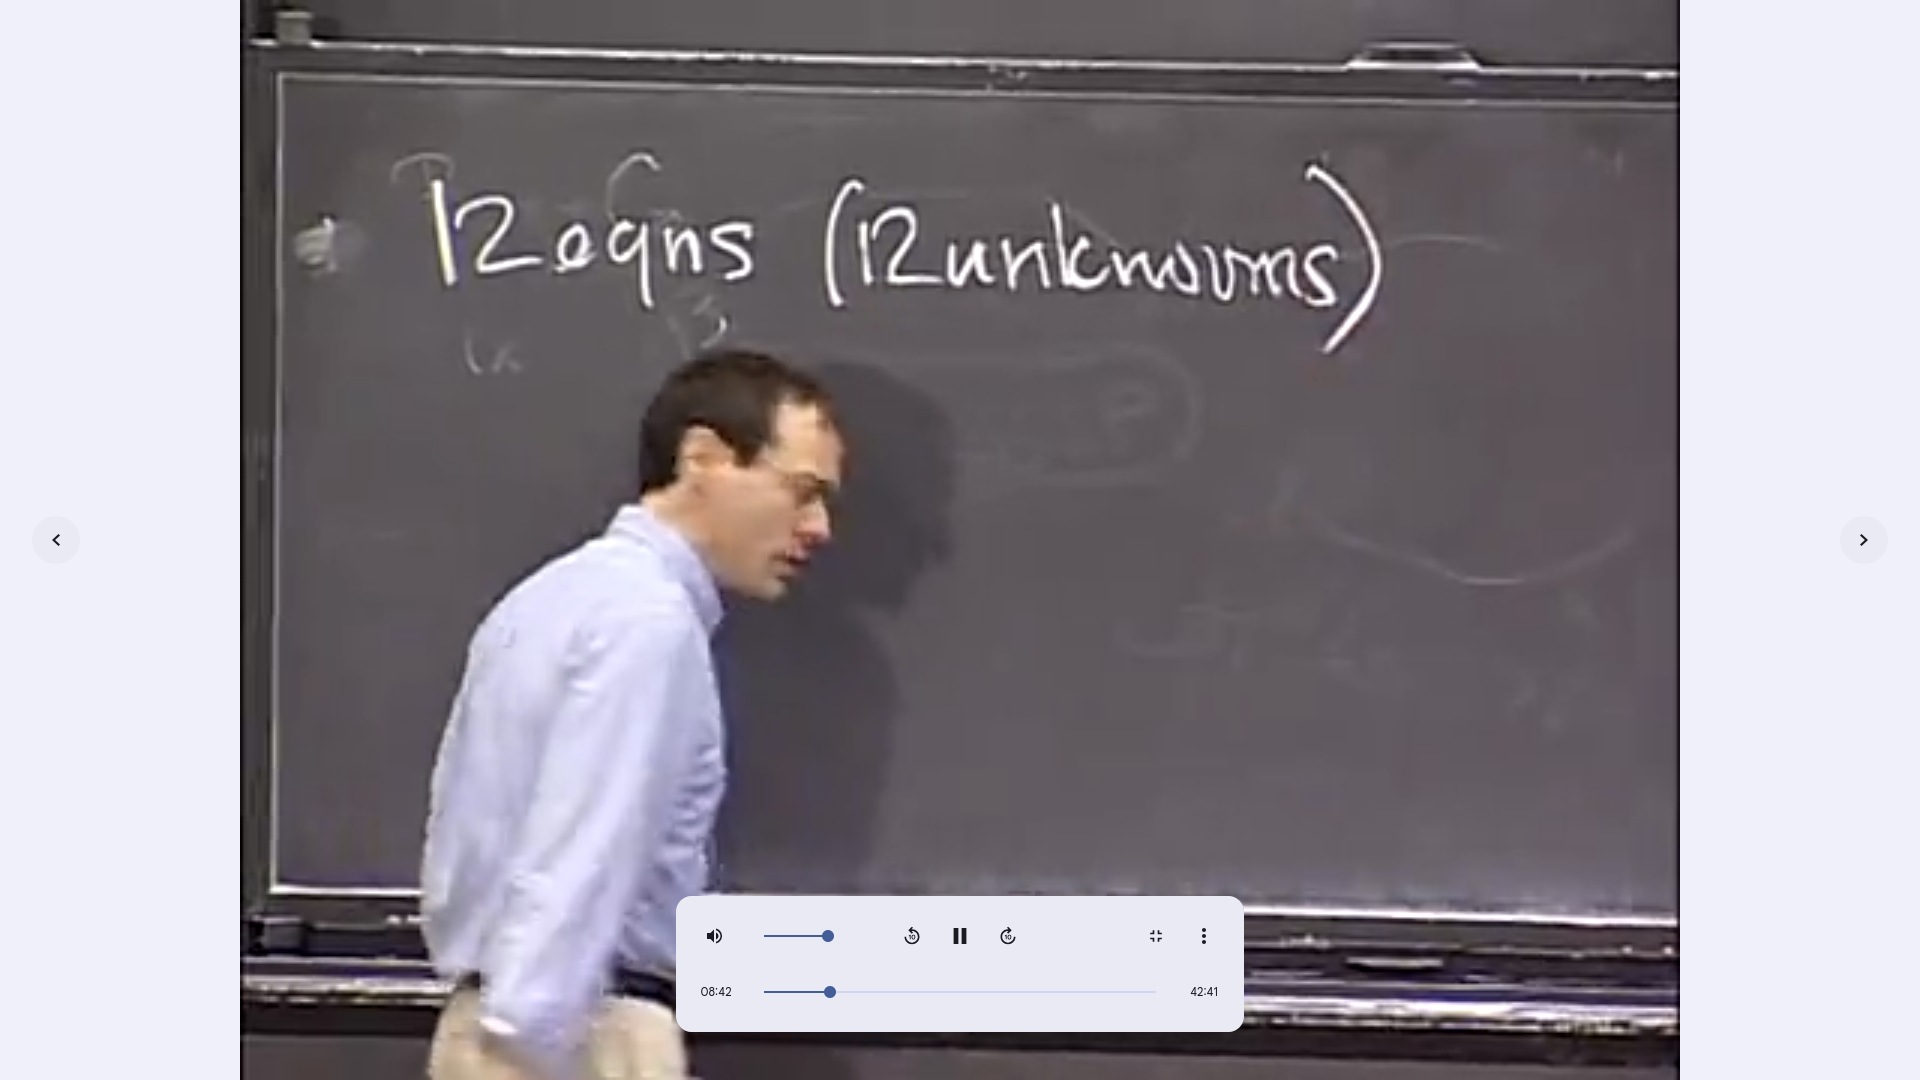 12 eqns (12 unknowns)
08:42
42:41